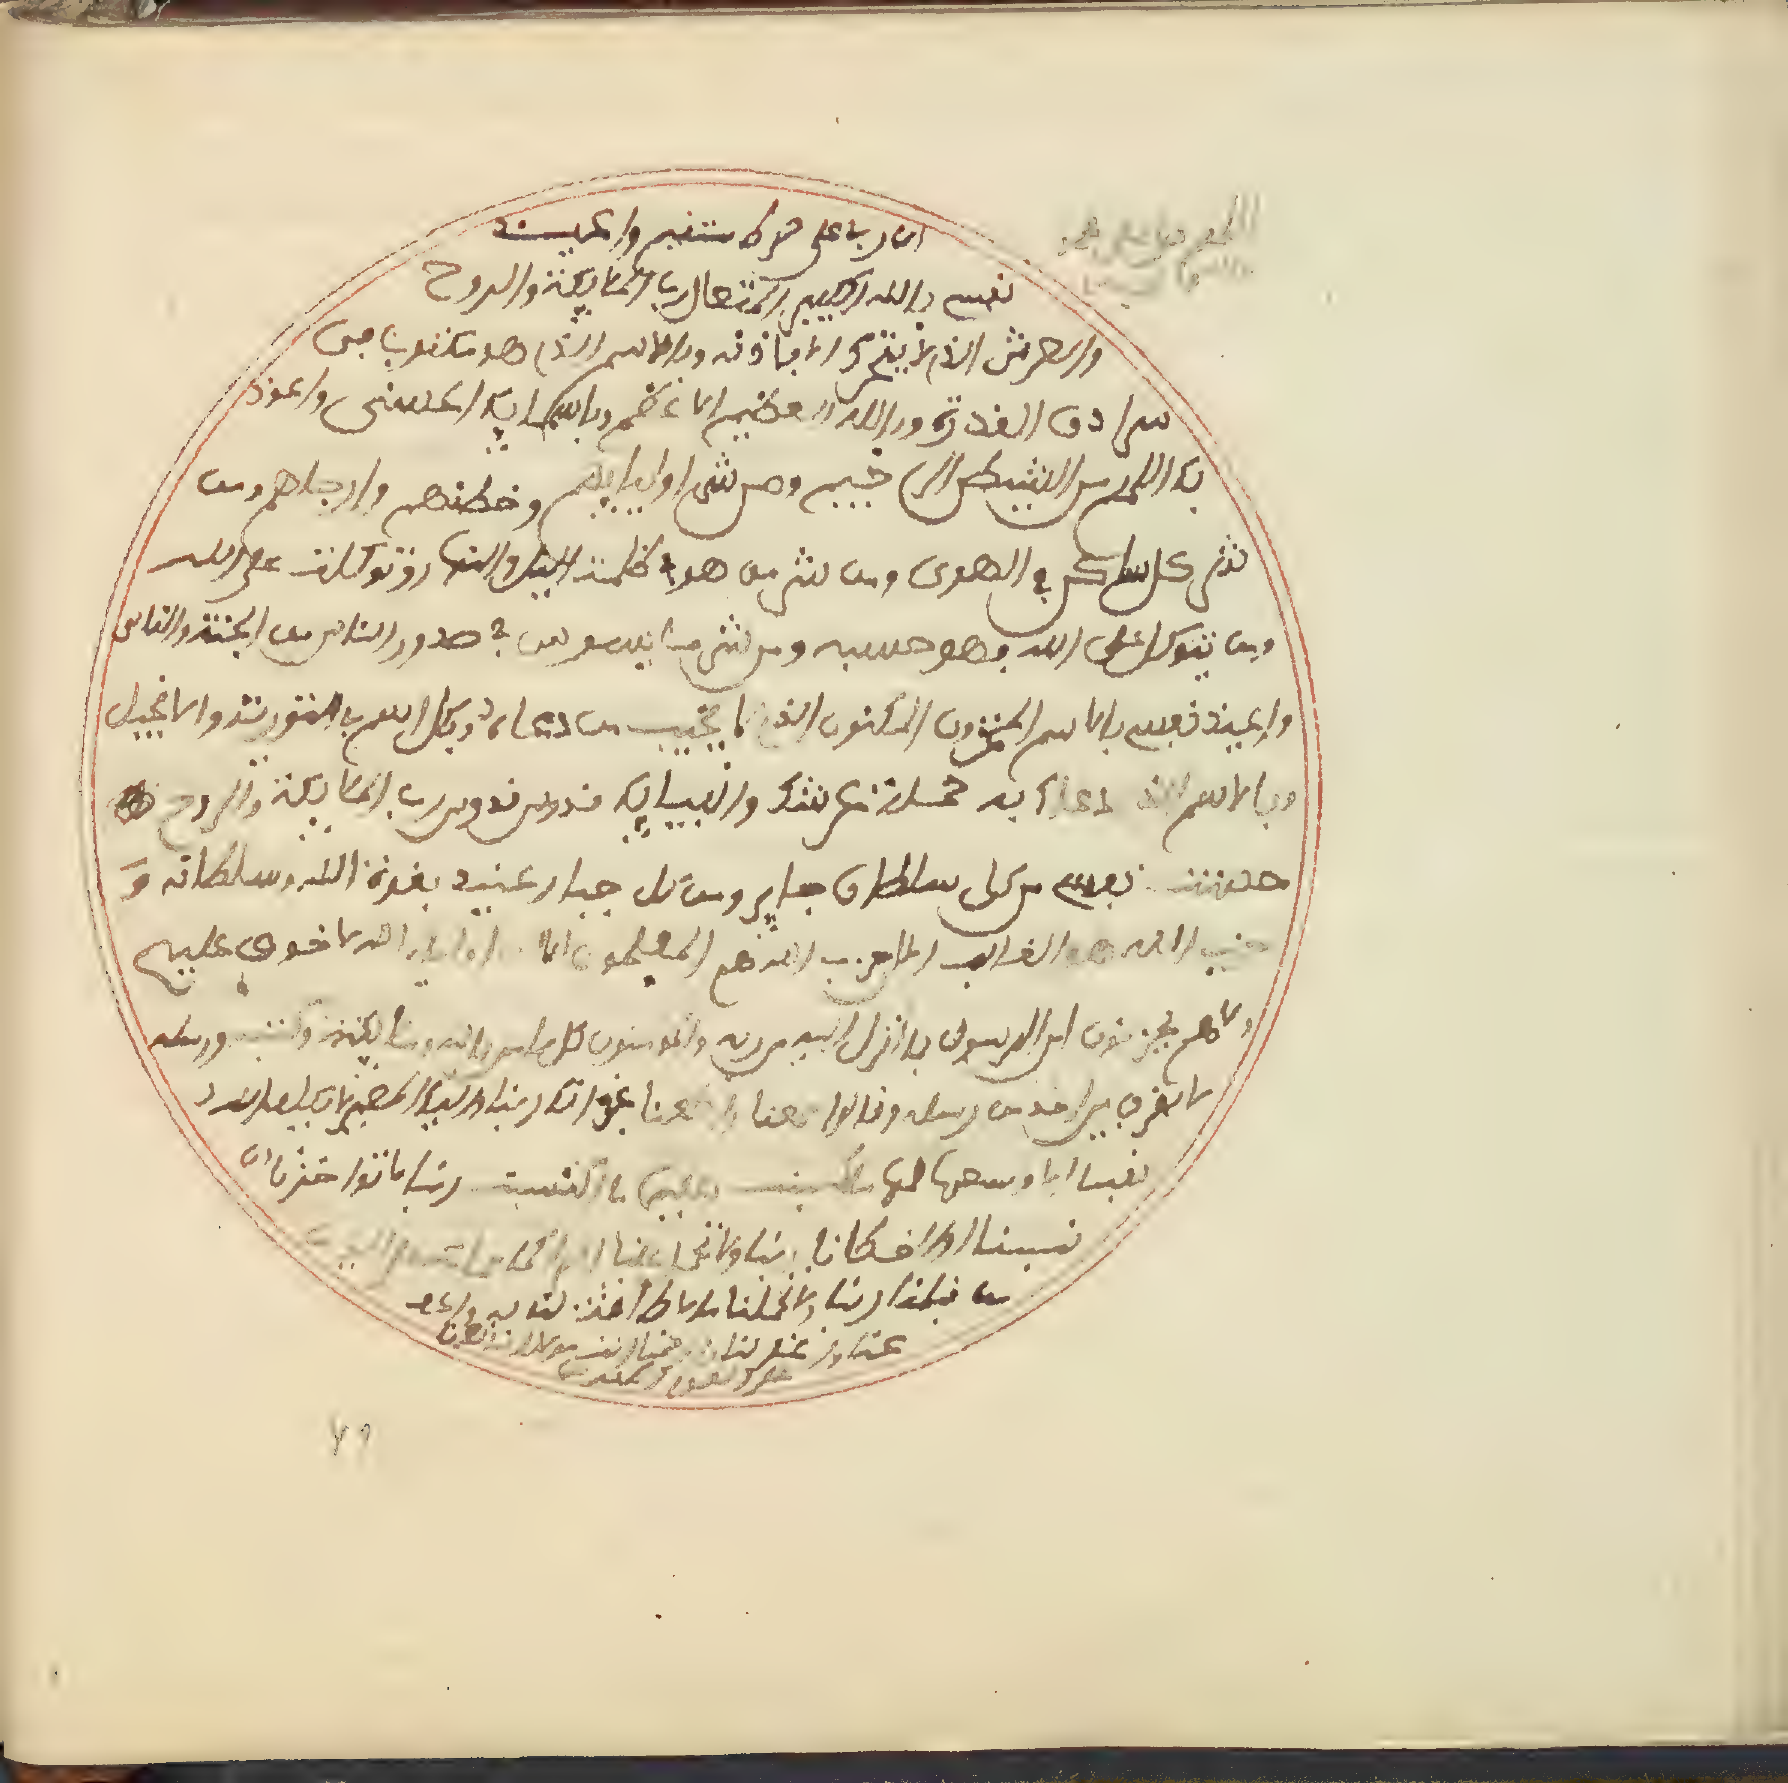 ان ربي على صرط مستقيم واعيذ
نفسي بالله الكبير المتعال رب الملايكة والروح
والعرش الذي لا يتحرك الا باذنه وبالاسم الذي هو مكتوب في
سرادق القدرة وبالله العظيم الاعظم وباسمايه الحسنى واعوذ
به اللهم من الشيطن الرجيم ومن شر اوليايهم وخطتهم وارجلهم ومن
شر كل ساكن في الهوى ومن شر من هو في ظلمت اليل والنهار وتوكلت على الله
ومن يتوكل على الله فهو حسبه ومن شر ما يوسوس في صدور الناس من الجنة والناس
واعيذ نفسي بالاسم المخزون المكنون الذي لا يخيب من دعاه وبكل اسم في التوريت والانجيل
وبالاسم الذي دعاك به حملة عرشك وانبيايه قدوس قدوس رب الملايكة والروح
حصنت نفسي من كل سلطان جاير ومن كل جبار عنيد بقوة الله وسلطانه و
حزب الله هو الغالب الا ان حزب الله هم المفلحون الا ان اوليا الله لا خوف عليهم
ولا هم يحزنون امن الرسول بما انزل اليه من ربه والمومنون كل امن بالله وملايكته وكتبه ورسله
لا نفرق بين احد من رسله وقالوا سمعنا واطعنا غفرانك ربنا واليك المصير لا يكلف الله
نفسا الا وسعها لها ما كسبت وعليها ما اكتسبت ربنا لا تواخذنا ان
نسينا او اخطانا ربنا ولا تحمل علينا اصرا كما حملته على الذين
من قبلنا ربنا ولا تحملنا ما لا طاقة لنا به واعف
عنا واغفر لنا وارحمنا انت مولانا فانصرنا
على القوم الكفرين
اللهم صل على محمد
٢٩